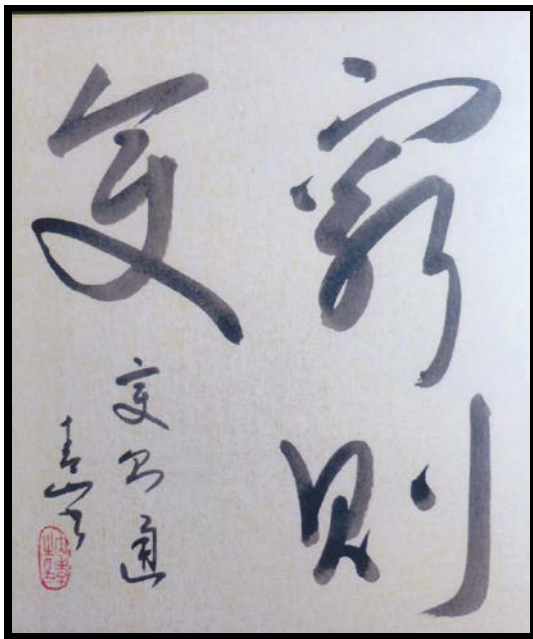 窮則
変
変則通
青山